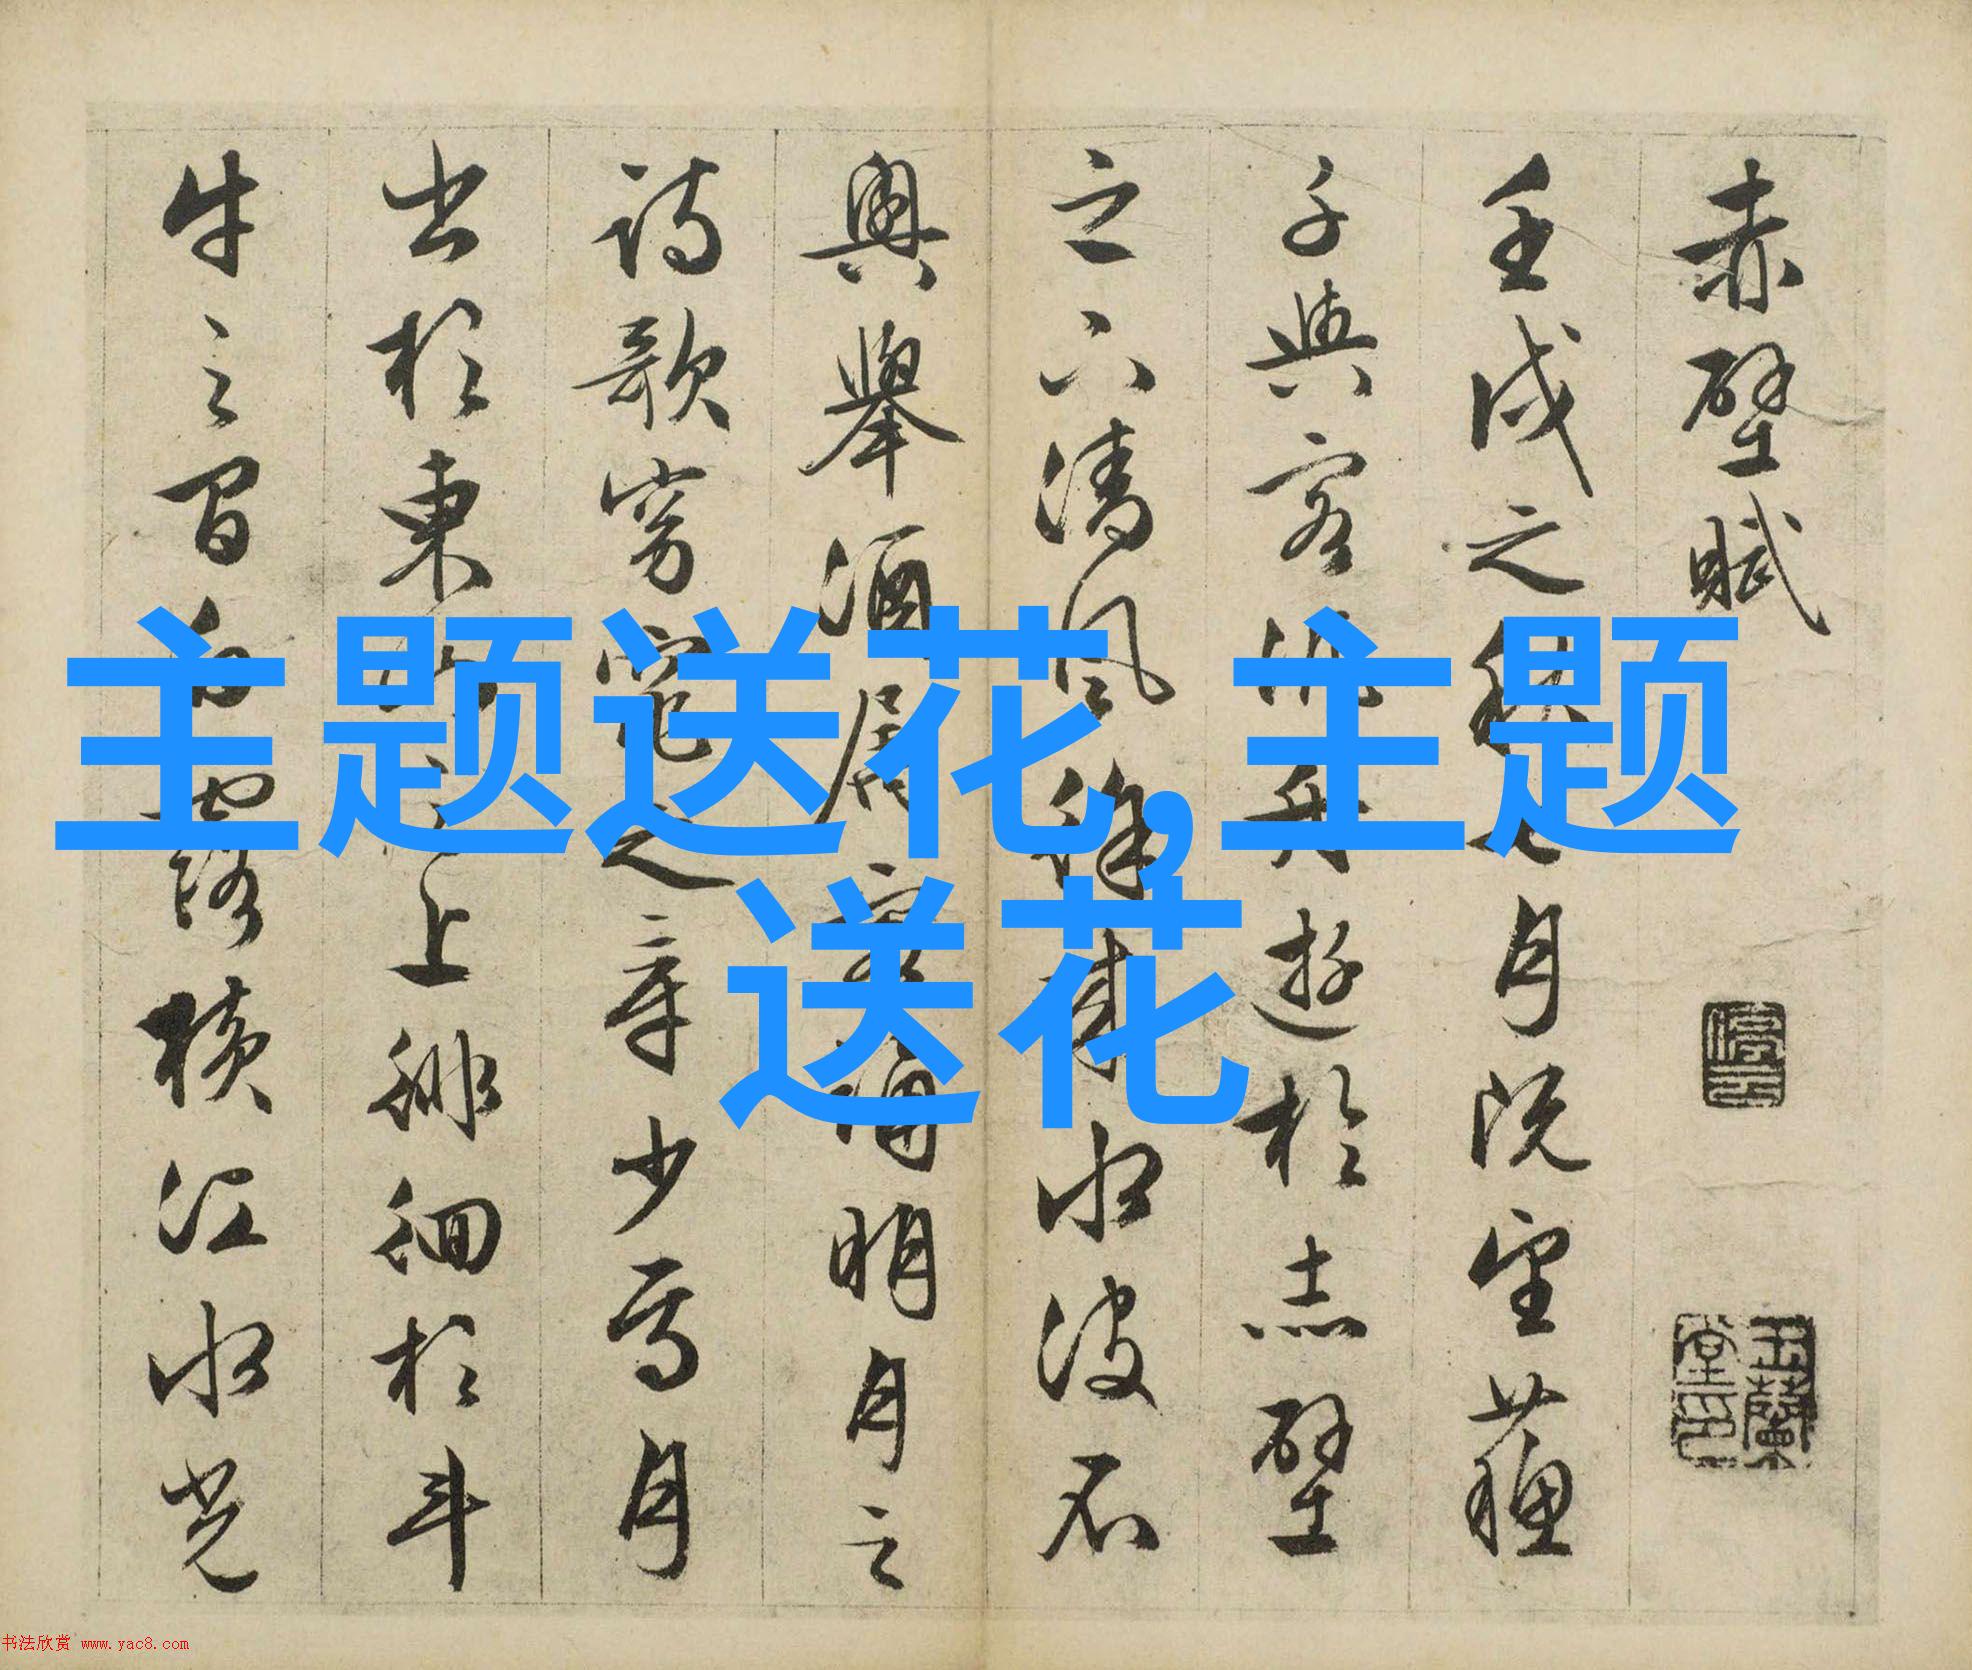 赤壁賦
壬戌之秋七月既望蘓
子與客泛舟遊於赤壁
之下清風徐来水波不
興舉酒屬客誦明月之
詩歌窈窕之章少焉月
出於東山之上徘徊於斗
牛之間白露橫江水光
主题送花,主题
送花
玉蘭堂印
书法欣赏 www.yac8.com